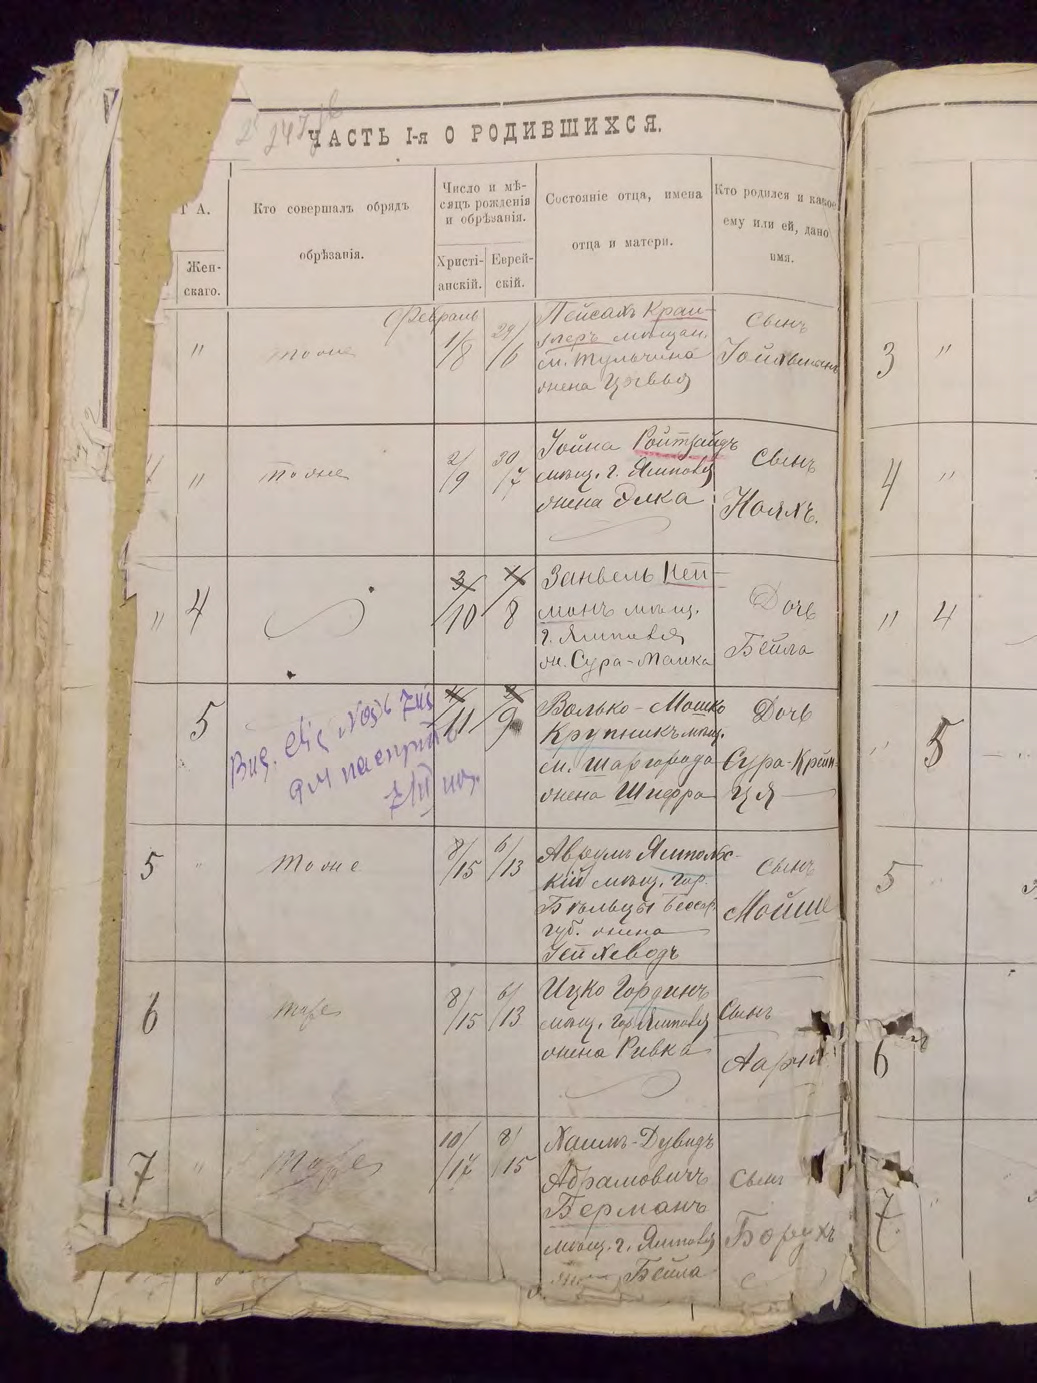 ЧАСТЬ I-я О РОДИВШИХСЯ.
Г А.
Жен-
скаго.
Кто совершалъ обрядъ
обрѣзанія.
Число и мѣ-
сяцъ рожденія
и обрѣзанія.
Христі-
анскій.
Еврей-
скій.
Состояніе отца, имена
отца и матери.
Кто родился и какое
ему или ей, дано
имя.
Февраль
"
тоже
1/8
29/6
Пейсахъ
мѣщан.
м. Тульчина
жена
Сынъ
3
"
"
тоже
2/9
30/7
Іойна Ройтзайдъ
мѣщ. г. Ямполя
жена Элка
Сынъ
Нояхъ.
4
"
"
4
3/10
8
Занвель Ней-
манъ мѣщ.
г. Ямполя
ж. Сура-Малка
Дочь
Бейла
"
4
5
11
9
Волько-Мошко
Крупникъ мѣщ.
м. Шаргорода
жена Шифра
Дочь
Сура-Крейн-
ця
5
5
"
тоже
8/15
6/13
Аврумъ Ямполь-
скій мѣщ. гор.
Бѣльцы Бессар.
губ. жена
Сынъ
Мойше
5
6
тоже
8/15
6/13
Ицко Гординъ
мѣщ. гор. Ямполя
жена Ривка
Сынъ
6
7
"
тоже
10/17
8/15
Хаимъ-Дувидъ
Абрамовичъ
Берманъ
мѣщ. г. Ямполя
Бейла
Сынъ
Борухъ
7.